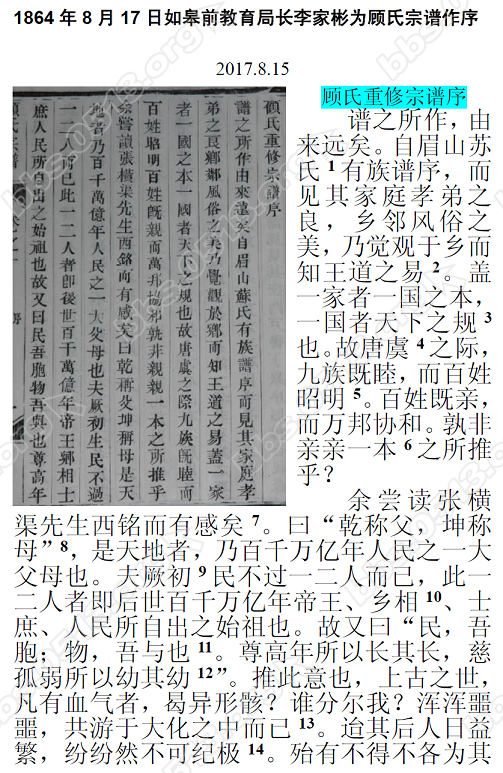 1864年8月17日如皋前教育局长李家彬为顾氏宗谱作序
2017.8.15
顧氏重修宗譜序
譜之所作由來遠矣自眉山蘇氏有族譜序而見其家庭孝
弟之良鄉鄰風俗之美乃覺觀於鄉而知王道之易蓋一家
者一國之本一國者天下之規也故唐虞之際九族旣睦而
百姓昭明百姓旣親而萬邦協和孰非親親一本之所推乎
余嘗讀張橫渠先生西銘而有感矣曰乾稱父坤稱母是天
地者乃百千萬億年人民之一大父母也夫厥初生民不過
一二人而已此一二人者卽後世百千萬億年帝王鄉相士
庶人民所自出之始祖也故又曰民吾胞物吾與也尊高年
顧氏宗譜
顾氏重修宗谱序
谱之所作，由
来远矣。自眉山苏
氏1有族谱序，而
见其家庭孝弟之
良，乡邻风俗之
美，乃觉观于乡而
知王道之易2。盖
一家者一国之本，
一国者天下之规3
也。故唐虞4之际，
九族既睦，而百姓
昭明5。百姓既亲，
而万邦协和。孰非
亲亲一本6之所推
乎？
余尝读张横
渠先生西铭而有感矣7。曰“乾称父，坤称
母”8，是天地者，乃百千万亿年人民之一大
父母也。夫厥初9民不过一二人而已，此一
二人者即后世百千万亿年帝王、乡相10、士
庶、人民所自出之始祖也。故又曰“民，吾
胞；物，吾与也11。尊高年所以长其长，慈
孤弱所以幼其幼12”。推此意也，上古之世，
凡有血气者，曷异形骸？谁分尔我？浑浑噩
噩，共游于大化之中而已13。迨其后人日益
繁，纷纷然不可纪极14。殆有不得不各为其